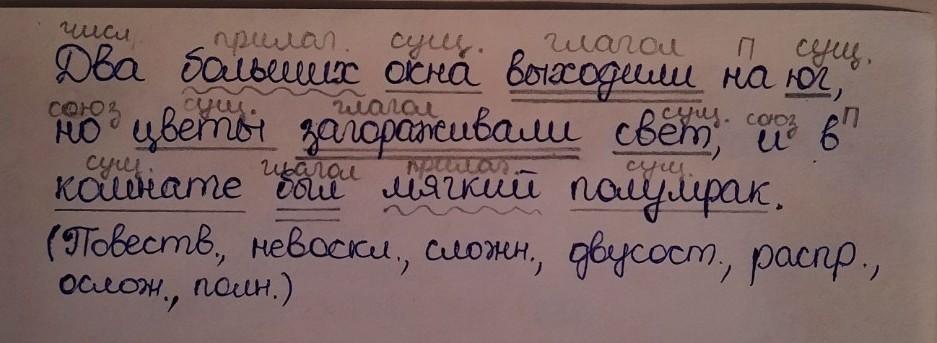 числ. прилаг. сущ. глагол П сущ.
Два больших окна выходили на юг,
союз сущ. глагол сущ. союз П
но цветы загораживали свет, и в
сущ. глагол прилаг. сущ.
комнате был мягкий полумрак.
(Повеств., невоскл., сложн., двусост., распр.,
ослож., полн.)